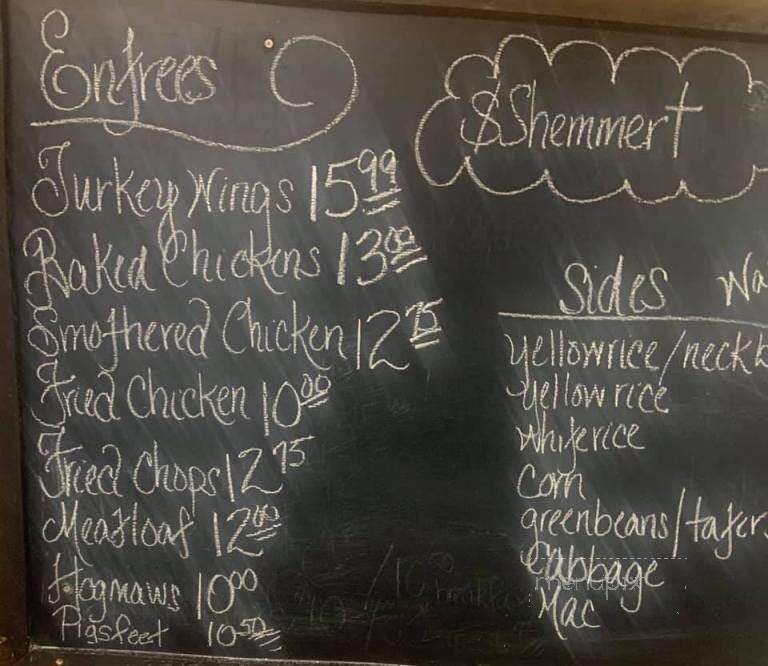 Entrees
Turkey Wings 15.99
Baked Chickens 13.00
Smothered Chicken 12.75
Fried Chicken 10.00
Fried Chops 12.75
Meatloaf 12.00
Hogmaws 10.00
Pigsfeet 10.50
$Shemmert
Sides Wa
yellowrice/neckb
yellow rice
whiterice
Corn
greenbeans/tater
Cabbage
Mac
menupix